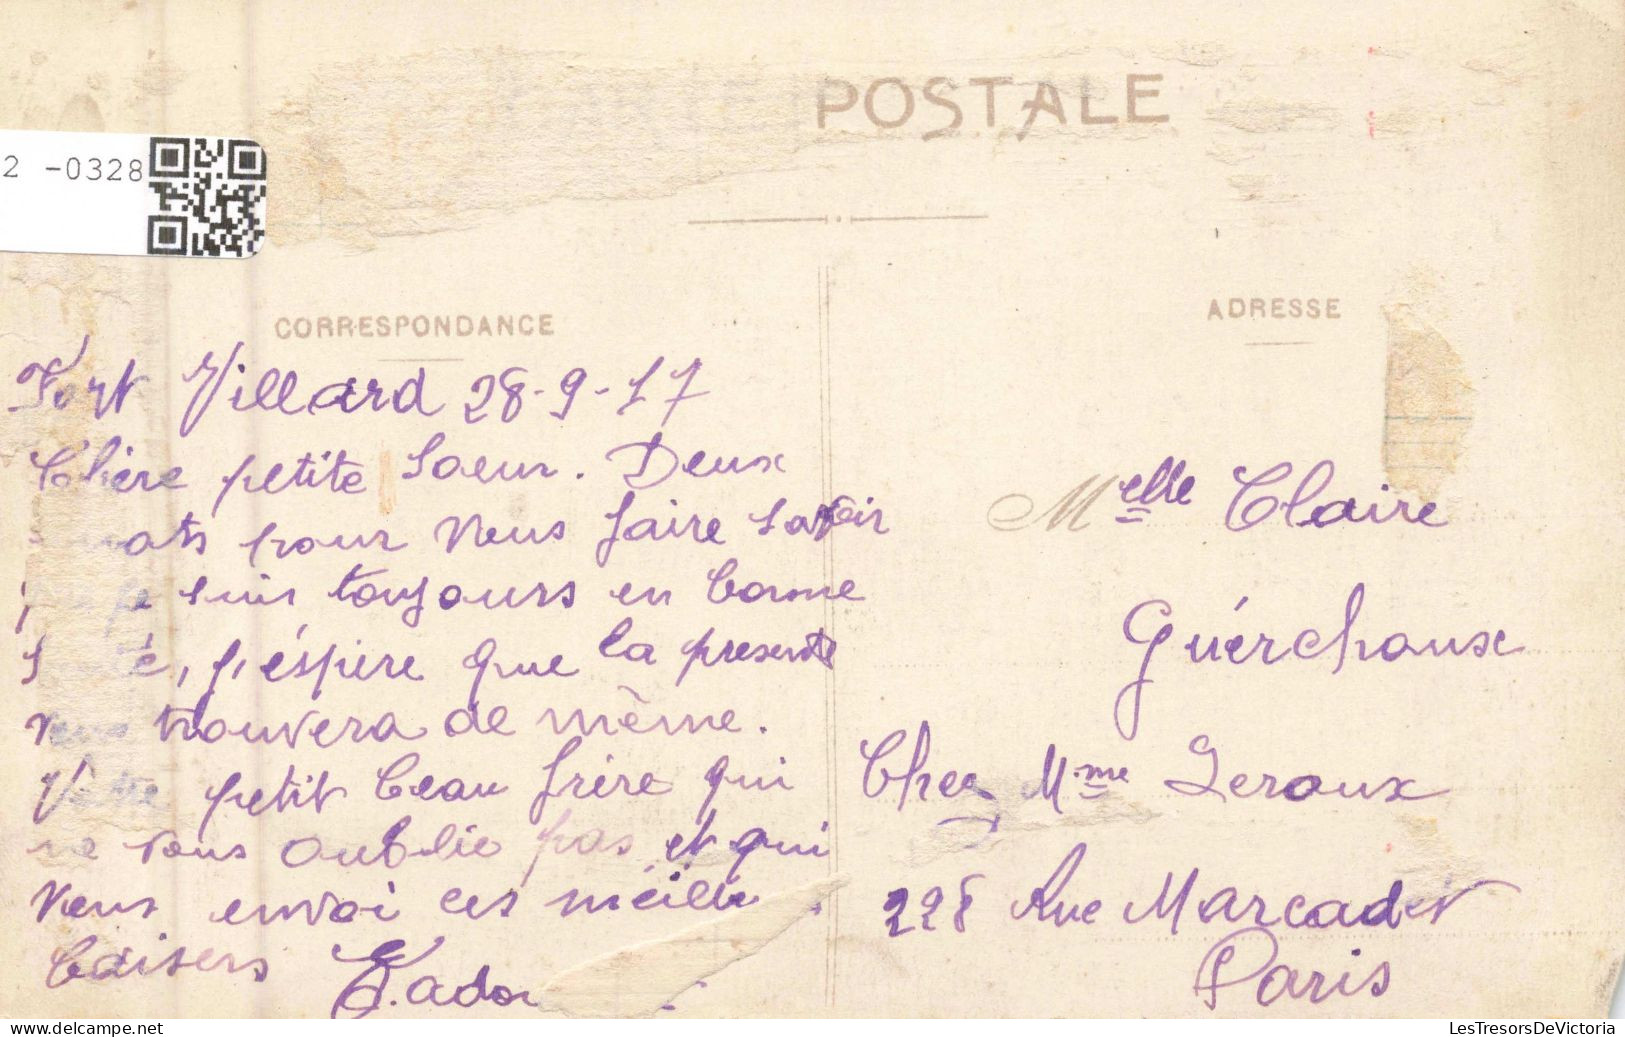 POSTALE
2 -0328
CORRESPONDANCE
Fort Villard 28-9-17
Chère petite Soeur. Deux
pour vous faire savoir
je suis toujours en bonne
j'éspère que la presente
vous trouvera de même.
Votre petit beau frère qui
ne vous oublie pas et qui
vous envoi ces meille
baisers
ADRESSE
Melle Claire
Guérchoux
Chez Mme Leroux
228 Rue Marcadet
Paris
LesTresorsDeVictoria